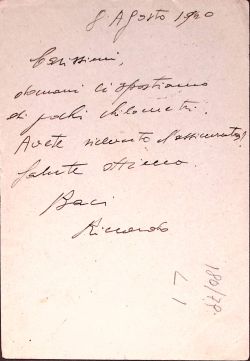 8 Agosto 1940
Carissimi,
domani ci spostiamo
di pochi chilometri.
Avete ricevuto l'assicurata?
Salute ottima.
Baci
Riccardo
L 7
180/78.